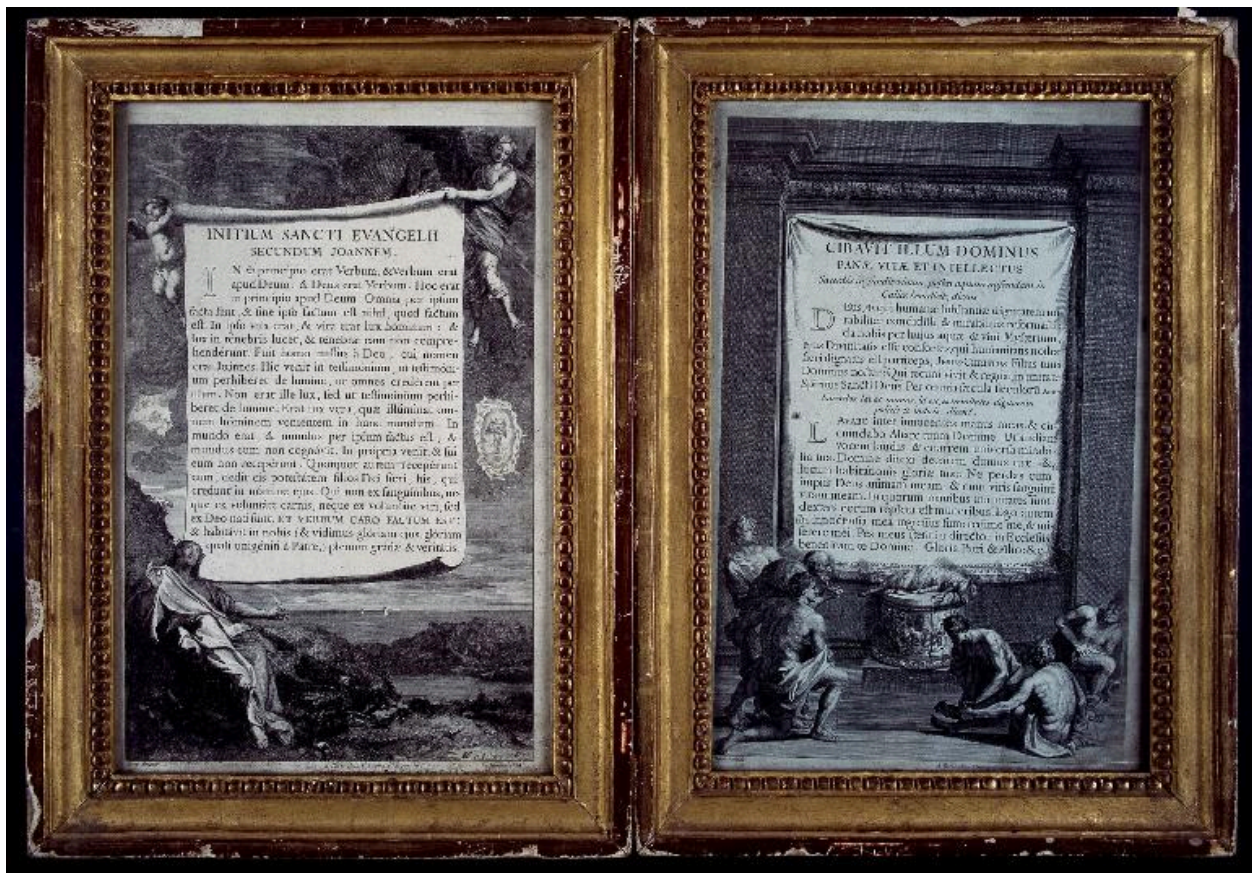 INITIUM SANCTI EVANGELII
SECUNDUM JOANNEM.
IN principio erat Verbum, & Verbum erat
apud Deum: & Deus erat Verbum. Hoc erat
in principio apud Deum. Omnia per ipsum
facta sunt, & sine ipso factum est nihil, quod factum
est. In ipso vita erat, & vita erat lux hominum: &
lux in tenebris lucet, & tenebræ eam non compre-
henderunt. Fuit homo missus à Deo, cui nomen
erat Joannes. Hic venit in testimonium, ut testimoni-
um perhiberet de lumine, ut omnes crederent per
illum. Non erat ille lux, sed ut testimonium perhi-
beret de lumine. Erat lux vera, quæ illuminat om-
nem hominem venientem in hunc mundum. In
mundo erat, & mundus per ipsum factus est, &
mundus eum non cognovit. In propria venit, & sui
eum non receperunt. Quotquot autem receperunt
eum, dedit eis potestatem filios Dei fieri, his, qui
credunt in nomine ejus. Qui non ex sanguinibus, ne-
que ex voluntate carnis, neque ex voluntate viri, sed
ex Deo nati sunt. ET VERBUM CARO FACTUM EST:
& habitavit in nobis: & vidimus gloriam ejus, gloriam
quasi unigeniti à Patre, plenum gratiæ & veritatis.
CIBAVIT ILLUM DOMINUS
PANE VITÆ ET INTELLECTUS
Calice benedicit, dicens
DEUS, qui humanæ substantiæ dignitatem mi
rabiliter condidisti, & mirabilius reformasti
da nobis per hujus aquæ & vini Mysterium,
ejus Divinitatis esse consortes, qui humanitatis nostræ
fieri dignatus est particeps, Jesus Christus Filius tuus
Dominus noster: Qui tecum vivit & regnat in unitate
Spiritus Sancti Deus Per omnia sæcula sæculorum
LAVABO inter innocentes manus meas, & cir
cumdabo Altare tuum Domine. Ut audiam
vocem laudis & enarrem universa mirabi-
lia tua. Domine dilexi decorem domus tuæ &
locum habitationis gloriæ tuæ. Ne perdas cum
impiis Deus animam meam, & cum viris sanguinū
vitam meam. In quorum manibus iniquitates sunt
dextera eorum repleta est muneribus. Ego autem
in innocentia mea ingressus sum, redime me, & mi
serere mei. Pes meus stetit in directo, in Ecclesiis
benedicam te Domine. Gloria Patri & Filio, &c.